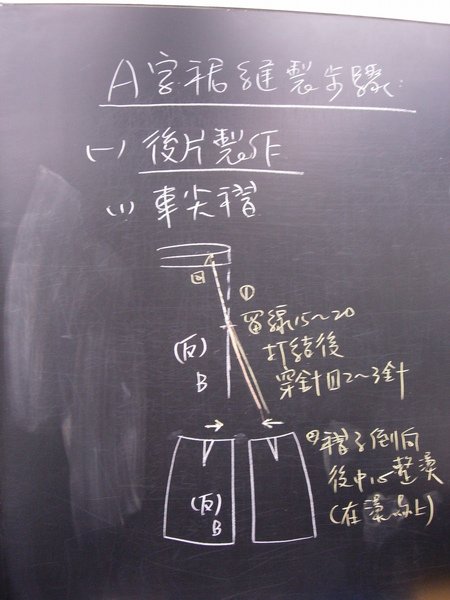 A字裙縫製步驟:
(一) 後片製作
(1) 車尖褶
①
留線15~20
打結後
穿針目2~3針
(反)
B
②褶子倒向
後中心整燙
(在燙馬上)
(反)
B